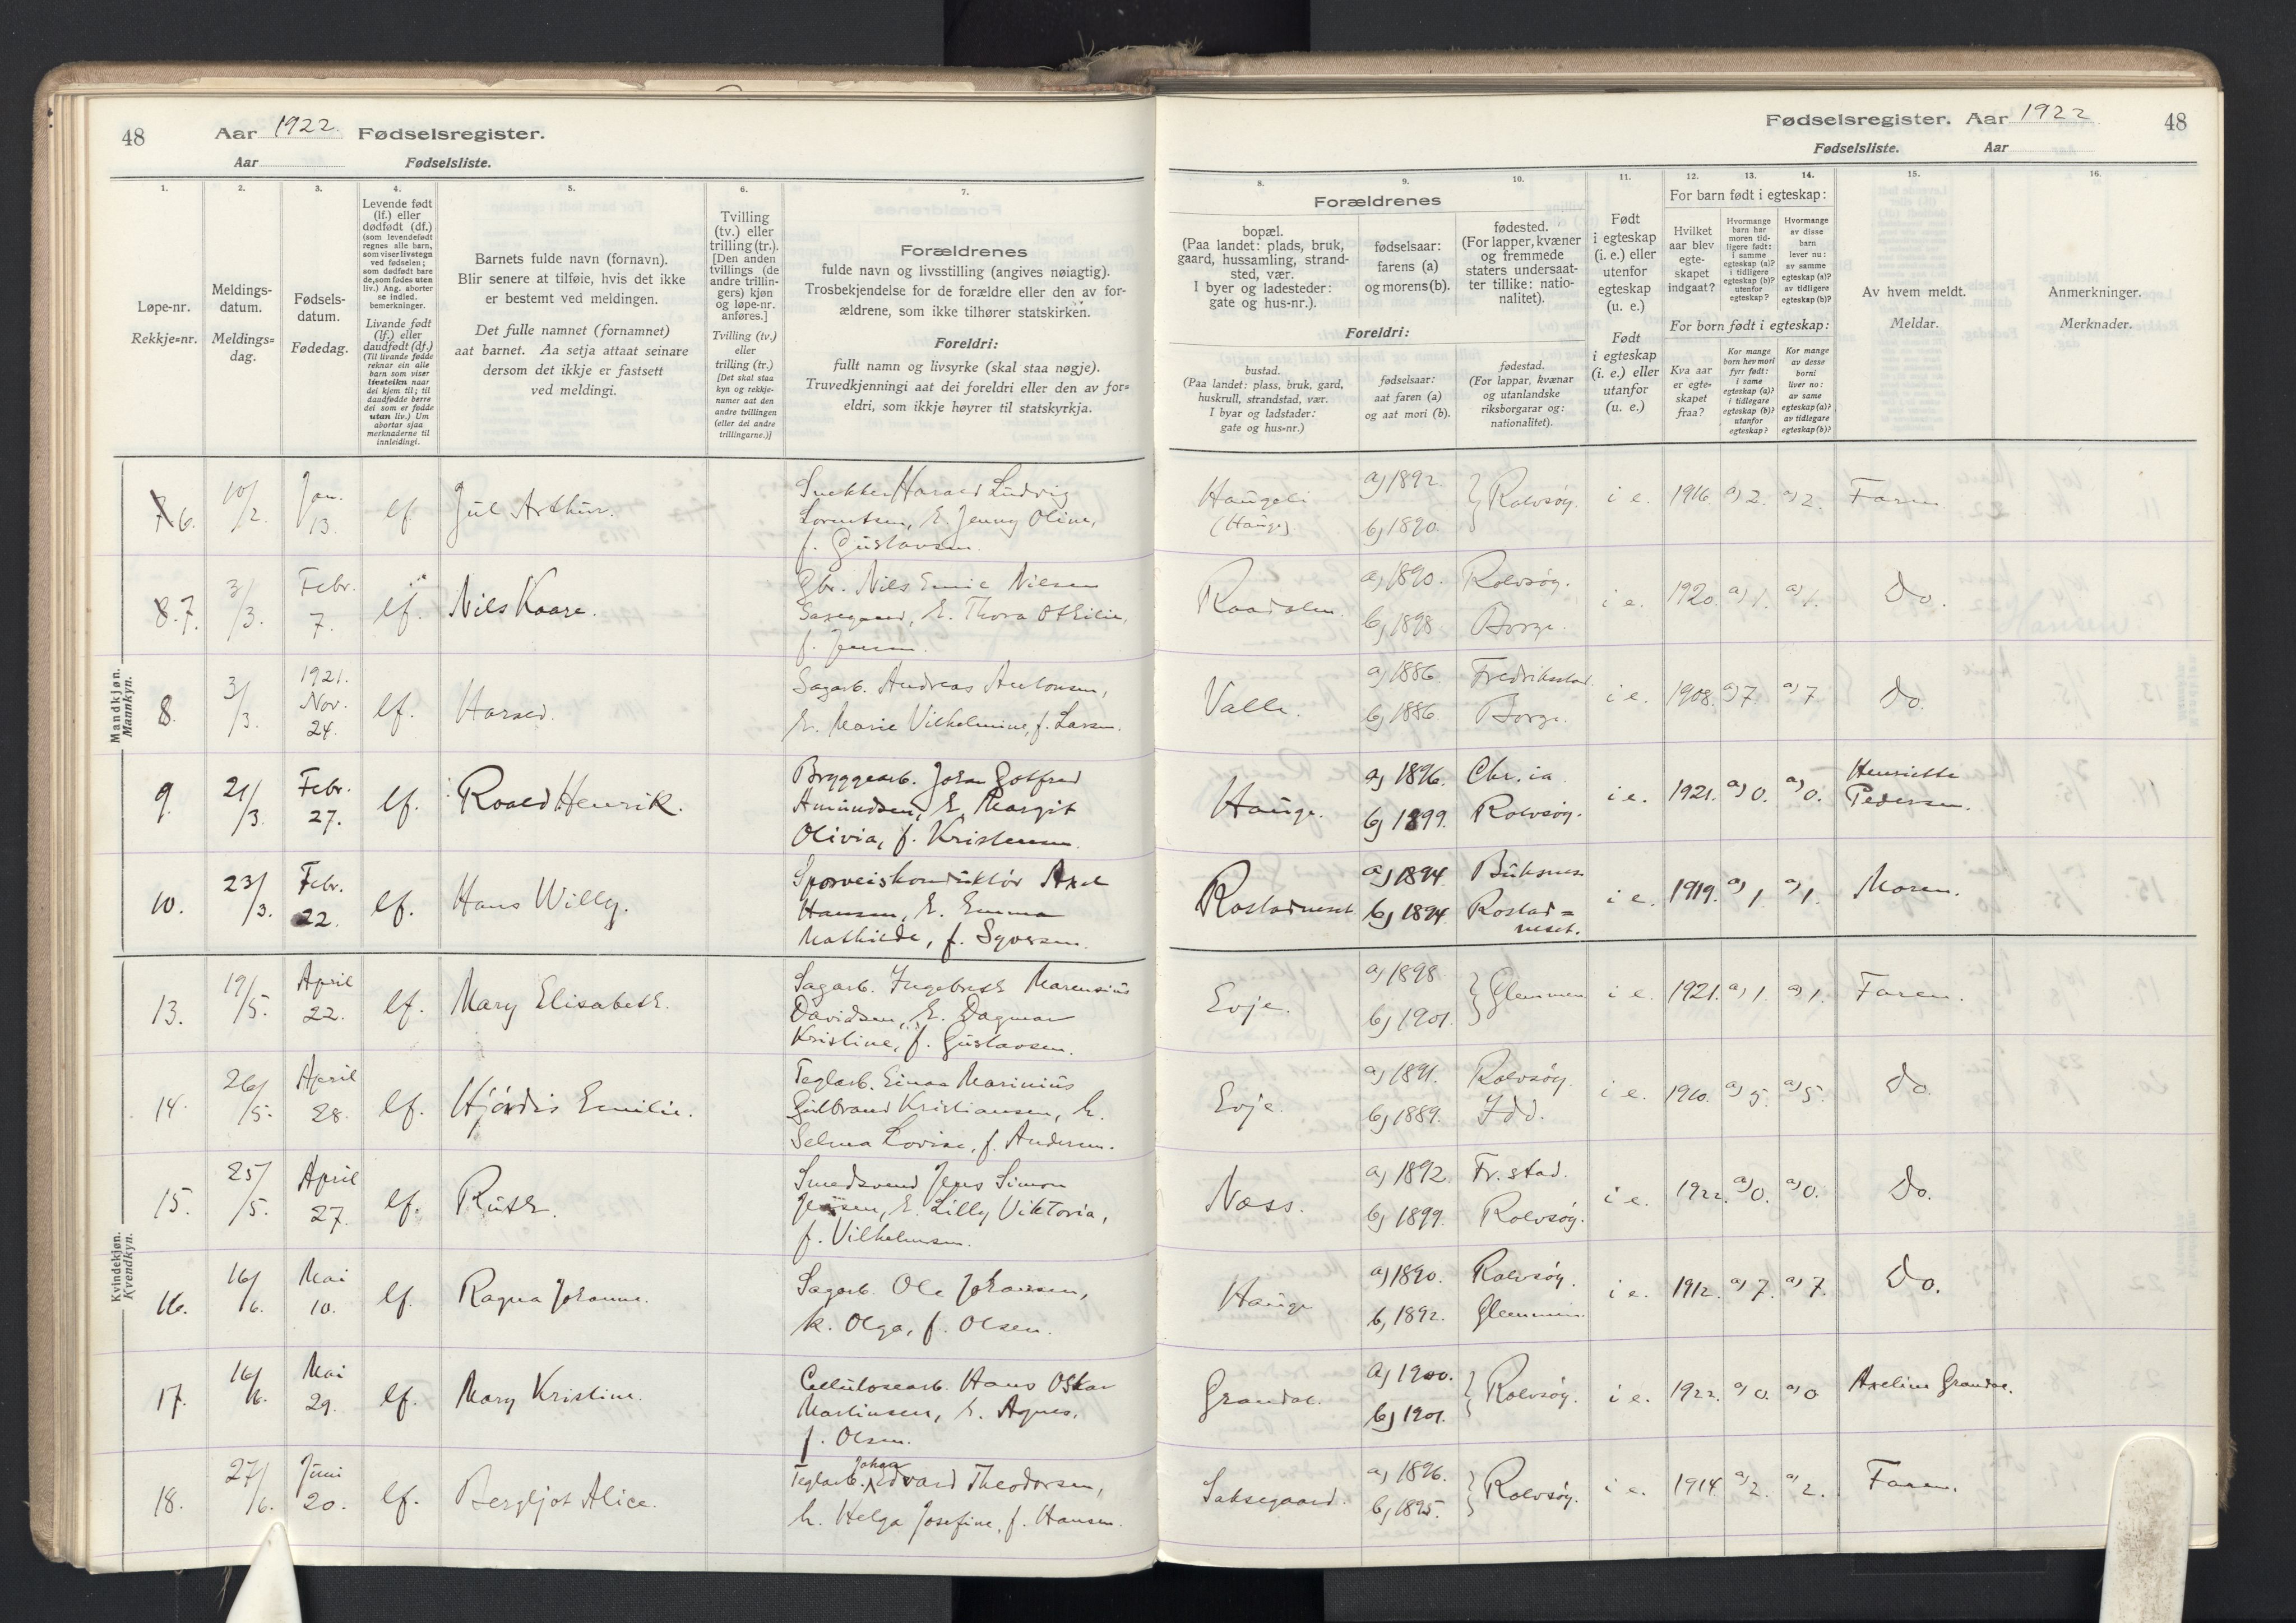 48 Aar 1922. Fødselsregister.
Aar Fødselsliste.
1. 2. 3. 4. 5. 6. 7.
Løpe-nr.
Rekkje=nr.
Meldings-
datum.
Meldings=
dag.
Fødsels-
datum.
Fødedag.
Levende født
(lf.) eller
dødfødt (df.)
(som levendefødt
regnes alle barn,
som viser livstegn
ved fødselen;
som dødfødt bare
de, som fødes uten
liv.) Ang. aborter
se indled.
bemerkninger.
Livande født
(lf.) eller
daudfødt (df.)
(Til livande fødde
reknar ein alle
barn som viser
livsteikn naar
dei kjem til; til
daudfødde berre
dei som er fødde
utan liv.) Um
abortar sjaa
merknaderne til
innleidingi.
Barnets fulde navn (fornavn).
Blir senere at tilføie, hvis det ikke
er bestemt ved meldingen.
Det fulle namnet (fornamnet)
aat barnet. Aa setja attaat seinare
dersom det ikkje er fastsett
ved meldingi.
Tvilling
(tv.) eller
trilling (tr.).
[Den anden
tvillings (de
andre trillin-
gers) kjøn
og løpe-nr.
anføres.]
Tvilling (tv.)
eller
trilling (tr.)
[Det skal staa
kyn og rekkje-
numer aat den
andre tvillingen
(eller dei andre
trillingarne.)]
Forældrenes
fulde navn og livsstilling (angives nøiagtig).
Trosbekjendelse for de forældre eller den av for-
ældrene, som ikke tilhører statskirken.
Foreldri:
fullt namn og livsyrke (skal staa nøgje).
Truvedkjenningi aat dei foreldri eller den av for=
eldri, som ikkje høyrer til statskyrkja.
Mandkjøn.
Mannkyn.
6. 10/2. Jan. 13. lf. Jul Arthur. Snekker Harald Ludvig
Lorentsen, h. Jenny Oline,
f. Gustavsen.
8. 7. 3/3. Febr. 7. lf. Nils Kaare. Gbr. Nils Emil Nilsen
Saxegaard, h. Thora Othilie,
f. Jensen.
8. 3/3. 1921. Nov. 24. lf. Harald. Sagarb. Andreas Antonsen,
h. Marie Vilhelmine, f. Larsen.
9. 21/3. Febr. 27. lf. Roald Henrik. Bryggearb. Johan Gotfred
Amundsen, h. Margit
Olivia, f. Kristensen.
10. 23/3. Febr. 22. lf. Hans Willy. Sporveiskonduktør Axel
Hansen, h. Emma
Mathilde, f. Syversen.
Kvindekjøn.
Kvendkyn.
13. 19/5. April 22. lf. Mary Elisabeth. Sagarb. Ingebreth Marensius
Davidsen, h. Dagmar
Kristine, f. Gustavsen.
14. 26/5. April 28. lf. Hjørdis Emilie. Teglarb. Einar Marinius
Gulbrand Kristiansen, h.
Selma Lovise, f. Andersen.
15. 25/5. April 27. lf. Ruth. Smedsvend Jens Simon
Jensen, h. Lilly Viktoria,
f. Vilhelmsen.
16. 16/6. Mai 10. lf. Ragna Johanne. Sagarb. Ole Johansen,
h. Olga, f. Olsen.
17. 16/6. Mai 29. lf. Mary Kristine. Cellulosearb. Hans Oskar
Martinsen, h. Agnes,
f. Olsen.
18. 27/6. Juni 20. lf. Bergljot Alice. Teglarb. Johan Edvard Theodorsen,
h. Helga Josefine, f. Hansen.
Fødselsregister. Aar 1922 48
Fødselsliste. Aar
8. 9. 10. 11. 12. 13. 14. 15. 16.
Forældrenes
bopæl.
(Paa landet: plads, bruk,
gaard, hussamling, strand-
sted, vær.
I byer og ladesteder:
gate og hus-nr.).
fødselsaar:
farens (a)
og morens (b).
fødested.
(For lapper, kvæner
og fremmede
staters undersaat-
ter tillike: natio-
nalitet).
Foreldri:
bustad.
(Paa landet: plass, bruk, gard,
huskrull, strandstad, vær.
I byar og ladstader:
gate og hus=nr.)
fødselsaar:
aat faren (a)
og aat mori (b).
fødestad.
(For lappar, kvænar
og utanlandske
riksborgarar og:
nationalitet).
Født
i egteskap
(i. e.) eller
utenfor
egteskap
(u. e.)
Født
i egteskap
(i. e.) eller
utanfor
(u. e.)
For barn født i egteskap:
Hvilket
aar blev
egte-
skapet
indgaat?
Hvormange
barn har
moren tid-
ligere født:
i samme
egteskap (a)?
i tidligere
egteskap (b)?
utenfor
egteskap?
Hvormange
av disse
barn
lever nu:
av samme
egteskap (a)?
av tidligere
egteskap (b)?
For born født i egteskap:
Kva aar
er egte=
skapet
fraa?
Kor mange
born hev mori
fyrr født:
i same
egteskap (a)?
i tidlegare
egteskap (b)?
utanfor
egteskap?
Kor mange
av desse
borni
liver no:
av same
egteskap (a)?
av tidlegare
egteskap (b)?
Av hvem meldt.
Meldar.
Anmerkninger.
Merknader.
Haugeli (Hauge) a) 1892. b) 1890. Rolvsøy. i e. 1916. a) 2. a) 2. Faren
Raadalen. a) 1890. b) 1898 Rolvsøy. Borge. i e. 1920. a) 1. a) 1. Do.
Valle. a) 1886. b) 1886. Fredriksstad. Borge. i e. 1908. a) 7 a) 7 Do.
Hauge. a) 1896. b) 1899. Chr.ia Rolvsøy. i e. 1921. a) 0. a) 0. Henriette
Pedersen.
Rostadneset a) 1894. b) 1894. Buksnes Rostad=
neset. i e. 1919. a) 1. a) 1. Moren.
Evje. a) 1898 b) 1901. Glemmen i e. 1921. a) 1. a) 1. Faren.
Evje. a) 1891. b) 1889. Rolvsøy. Idd. i e. 1910. a) 5. a) 5. Do.
Næss. a) 1892. b) 1899. Fr.stad. Rolvsøy. i e. 1922. a) 0. a) 0. Do.
Hauge a) 1890. b) 1892. Rolvsøy. Glemmen. i e. 1912. a) 7. a) 7. Do.
Grandal. a) 1900. b) 1901. Rolvsøy. i e. 1922. a) 0. a) 0 Aveline Grandal.
Saksegaard. a) 1896. b) 1895. Rolvsøy. i e. 1914 a) 2. a) 2. Faren.